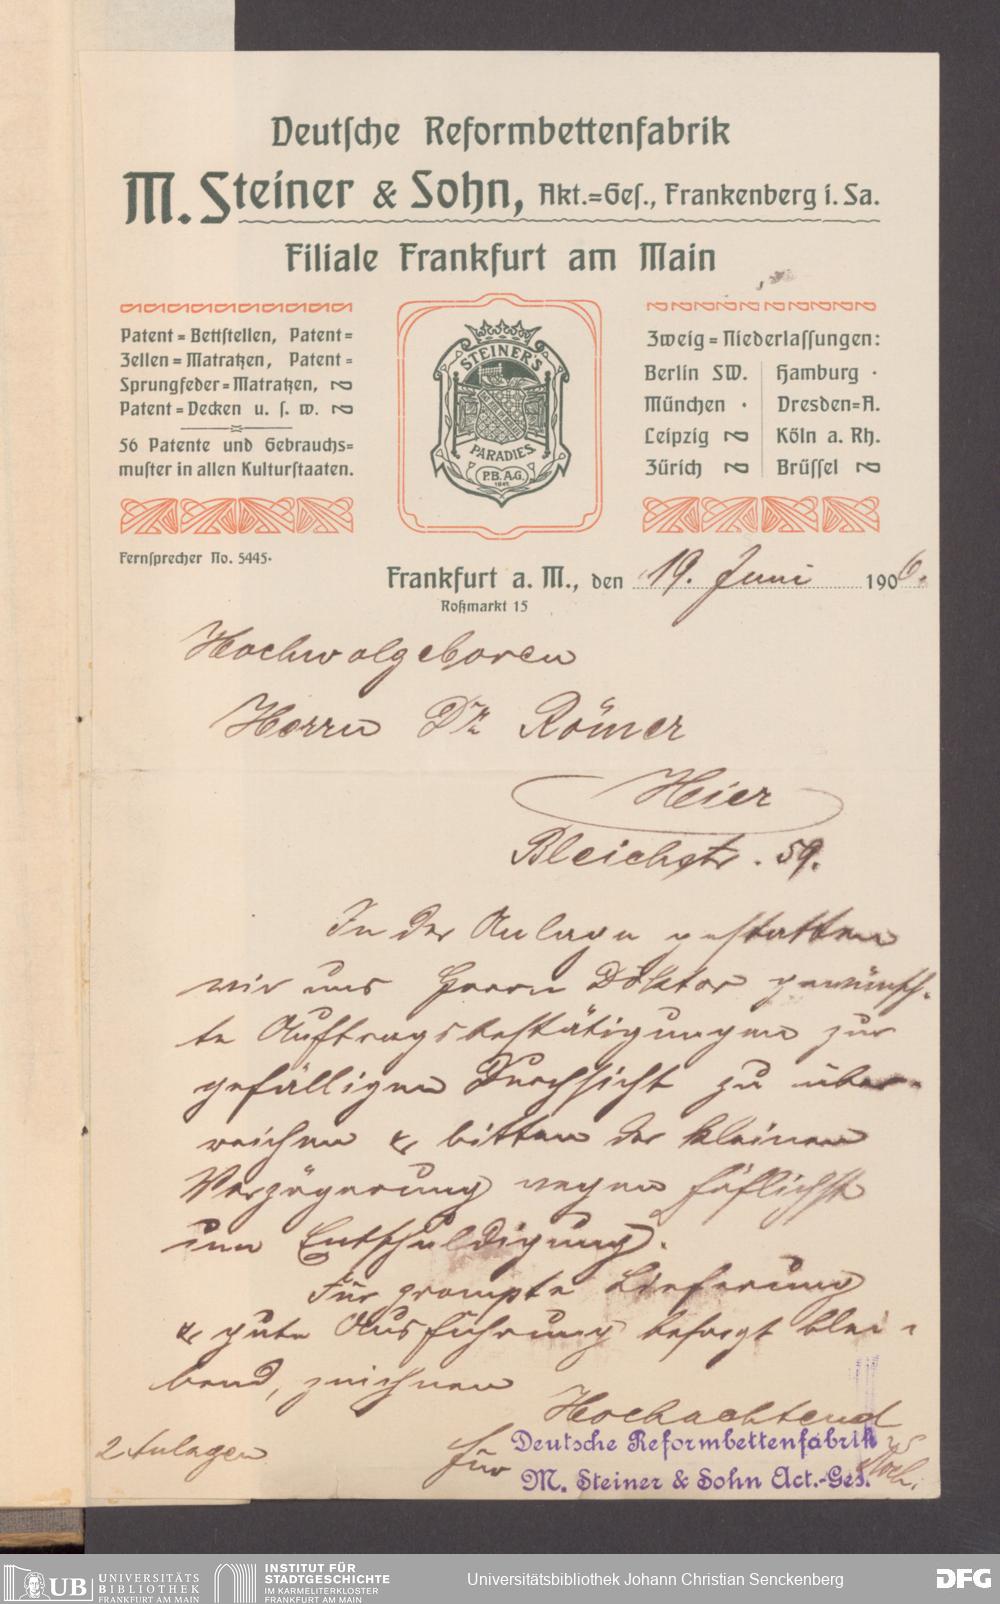 Deutsche Reformbettenfabrik
M. Steiner & Sohn, Akt.=Ges., Frankenberg i. Sa.
Filiale Frankfurt am Main
Patent=Bettstellen, Patent=
Zellen=Matratzen, Patent=
Sprungfeder=Matratzen,
Patent=Decken u. s. w.
56 Patente und Gebrauchs=
muster in allen Kulturstaaten.
STEINER'S
PARADIES
P.B.A.G.
Zweig=Niederlassungen:
Berlin SW. Hamburg ·
München · Dresden=A.
Leipzig Köln a. Rh.
Zürich Brüssel
Fernsprecher No. 5445·
Frankfurt a. M., den 19. Juni 1906.
Roßmarkt 15
Hochwolgeboren
Herrn Dr Römer
Hier
Bleichstr. 59.
In der Anlage gestatten
wir uns Herrn Doktor gewünsch-
te Auftragsbestätigungen zur
gefälligen Durchsicht zu über-
reichen & bitten der kleinen
Verzögerung wegen höflichst
um Entschuldigung.
Für prompte Lieferung
& gute Ausführung besorgt blei-
bend, zeichnen
Hochachtend
2 Anlagen
für Deutsche Reformbettenfabrik
M. Steiner & Sohn Act.-Ges.
UB UNIVERSITÄTS
BIBLIOTHEK
FRANKFURT AM MAIN
INSTITUT FÜR
STADTGESCHICHTE
IM KARMELITERKLOSTER
FRANKFURT AM MAIN
Universitätsbibliothek Johann Christian Senckenberg
DFG